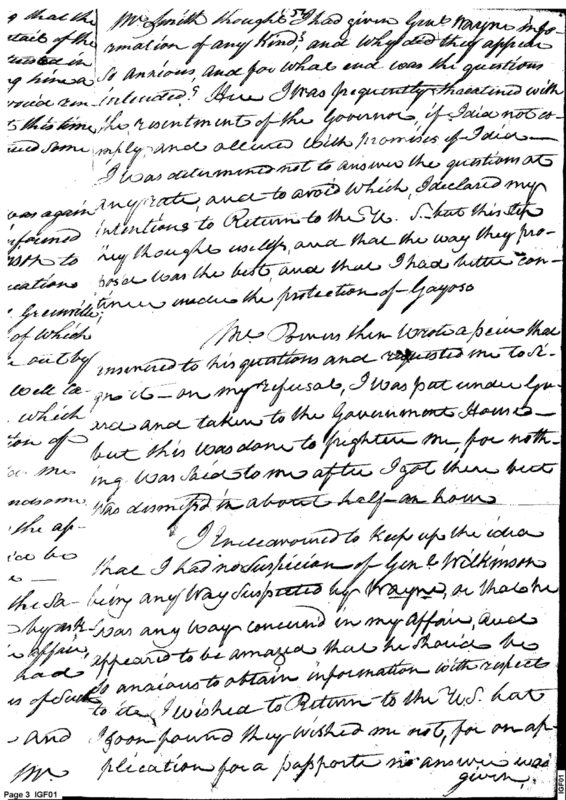 g that the
tail of the
ng him a
this time
was again
informed
to
Greenville
of which
out by
well ca-
which
tion of
me
handsome
the ap-
be
the Sa-
by ask-
affair,
had
us of such
and
Mr
Mr. Smith thought I had given Genl. Wayne info-
rmation of any Kind, and why did they appear
So anxious, and for what end was the questions
intended? Here I was frequently threatened with
the resentment of the Governor, if I did not co-
mply and allured with promises if I did—
I was determined not to answer the questions at
any rate, and to avoid which, I declared my
intentions to Return to the U. S. but this step
they thought useless, and that the way they pro-
posed was the best and that I had better con-
tinue under the protection of Gayoso
Mr Power then wrote a peice that
answered to his questions and requested me to Si-
gn it— on my refusal, I was put under Gu-
ard and taken to the Government House—
but this was done to frighten me, for noth-
ing was Said to me after I got there but
was dismissed in about half-an hour
I Endeavoured to Keep up the idea
that I had no Suspicion of Genl. Wilkinson
being any Way Suspected by Wayne, or that he
was any way concerned in my affair, and
appeared to be amazed that he Should be
So anxious to obtain information with respect
to it. I wished to Return to the U.S. but
I soon found they wished me not, for on ap-
plication for a passporte no answer was
given.
Page 3 IGF01
IGF01